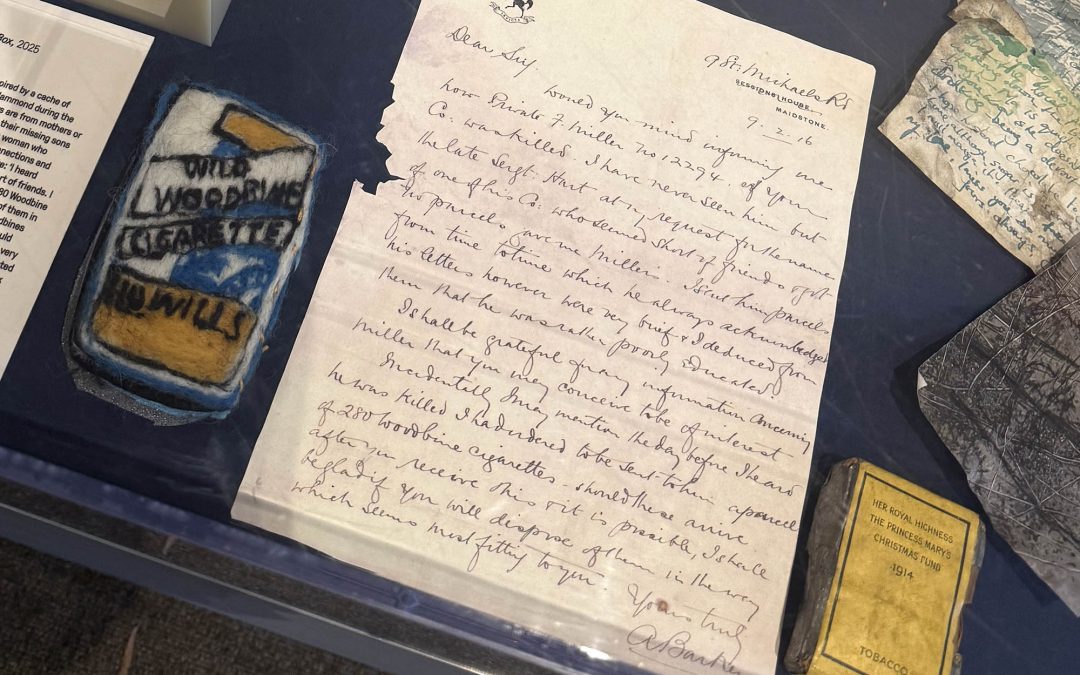 Box, 2025
pired by a cache of
Hammond during the
s are from mothers or
their missing sons
woman who
nnections and
e: 'I heard
rt of friends. I
80 Woodbine
of them in
dbines
ould
very
ted
WILD
WOODBINE
CIGARETTE
10 WILLS
INVICTA
9 St. Michaels Rd
SESSIONS HOUSE
MAIDSTONE
9 - 2 - 16
Dear Sir,
Would you mind informing me
how Private F. Miller No 12294. of your
Co: was killed. I have never seen him but
the late Sergt. Hart at my request for the name
of one of his Co: who seemed short of friends & got
no parcels gave me Miller's. I sent him parcels
from time to time which he always acknowledged
his letters however were very brief & I deduced from
them that he was rather poorly educated
I shall be grateful for any information concerning
Miller that you may conceive to be of interest
Incidentally I may mention the day before I heard
he was killed I had ordered to be sent to him a parcel
of 280 Woodbine cigarettes - should these arrive
after you receive this & it is possible, I shall
be glad if you will dispose of them in the way
which seems most fitting to you.
Yours truly
A Barker
HER ROYAL HIGHNESS
THE PRINCESS MARY'S
CHRISTMAS FUND
1914
TOBACCO